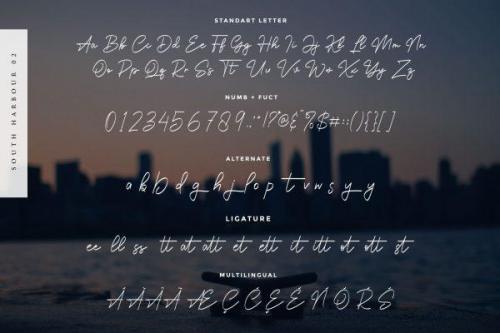 SOUTH HARBOUR 02
STANDART LETTER
Aa Bb Cc Dd Ee Ff Gg Hh Ii Jj Kk Ll Mm Nn
Oo Pp Qq Rr Ss Tt Uu Vv Ww Xx Yy Zz
NUMB + FUCT
0123456789
ALTERNATE
a k b d g h j l o p t r v w s y y
LIGATURE
ee ll ss tt at att et ett it itt ot ott st
MULTILINGUAL